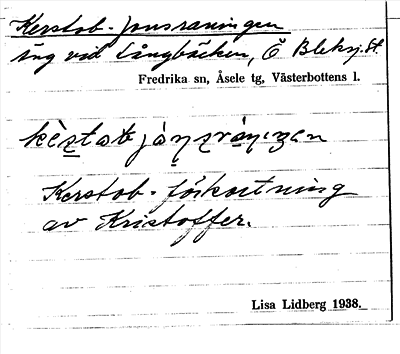 Kerstob-Jonsraningen
äng vid Långbäcken, Ö Bleksj. St
Fredrika sn, Åsele tg, Västerbottens l.
Kerstob - förkortning
av Kristoffer.
Lisa Lidberg 1938.